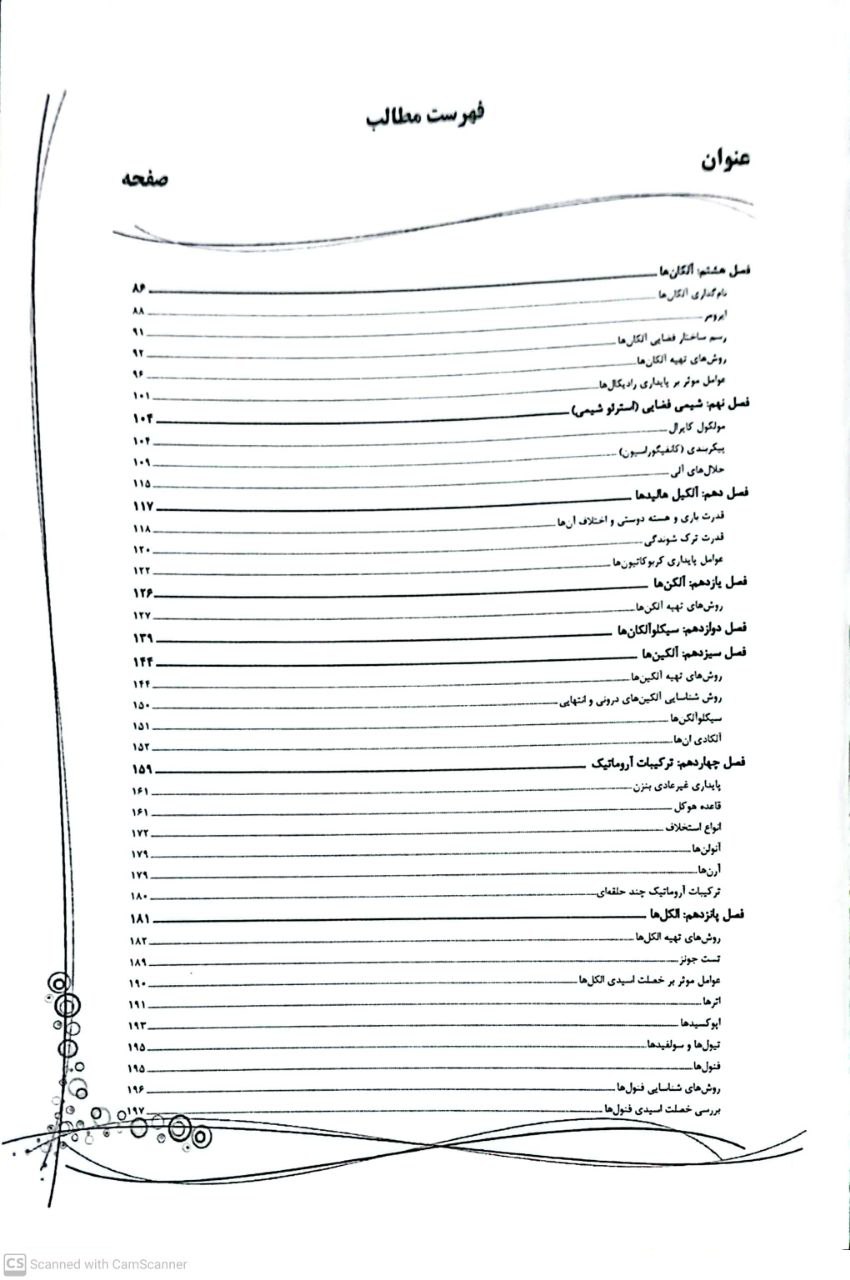 فهرست مطالب
عنوان
صفحه
فصل هشتم: آلکان‌ها ۸۶
نام‌گذاری آلکان‌ها ۸۸
ایزومر ۹۱
رسم ساختار فضایی آلکان‌ها ۹۲
روش‌های تهیه آلکان‌ها ۹۶
عوامل موثر بر پایداری رادیکال‌ها ۱۰۱
فصل نهم: شیمی فضایی (استرئو شیمی) ۱۰۴
مولکول کایرال ۱۰۴
پیکربندی (کانفیگوراسیون) ۱۰۹
حلال‌های آلی ۱۱۵
فصل دهم: آلکیل هالیدها ۱۱۷
قدرت بازی و هسته دوستی و اختلاف آن‌ها ۱۱۸
قدرت ترک شوندگی ۱۲۰
عوامل پایداری کربوکاتیون‌ها ۱۲۲
فصل یازدهم: آلکن‌ها ۱۲۶
روش‌های تهیه آلکن‌ها ۱۲۷
فصل دوازدهم: سیکلوآلکان‌ها ۱۳۹
فصل سیزدهم: آلکین‌ها ۱۴۴
روش‌های تهیه آلکین‌ها ۱۴۴
روش شناسایی آلکین‌های درونی و انتهایی ۱۵۰
سیکلوآلکن‌ها ۱۵۱
آلکادی ان‌ها ۱۵۲
فصل چهاردهم: ترکیبات آروماتیک ۱۵۹
پایداری غیرعادی بنزن ۱۶۱
قاعده هوکل ۱۶۱
انواع استخلاف ۱۷۲
آنولن‌ها ۱۷۹
آرن‌ها ۱۷۹
ترکیبات آروماتیک چند حلقه‌ای ۱۸۰
فصل پانزدهم: الکل‌ها ۱۸۱
روش‌های تهیه الکل‌ها ۱۸۲
تست جونز ۱۸۹
عوامل موثر بر خصلت اسیدی الکل‌ها ۱۹۰
اترها ۱۹۱
اپوکسیدها ۱۹۳
تیول‌ها و سولفیدها ۱۹۵
فنول‌ها ۱۹۵
روش‌های شناسایی فنول‌ها ۱۹۶
بررسی خصلت اسیدی فنول‌ها ۱۹۷
CS Scanned with CamScanner